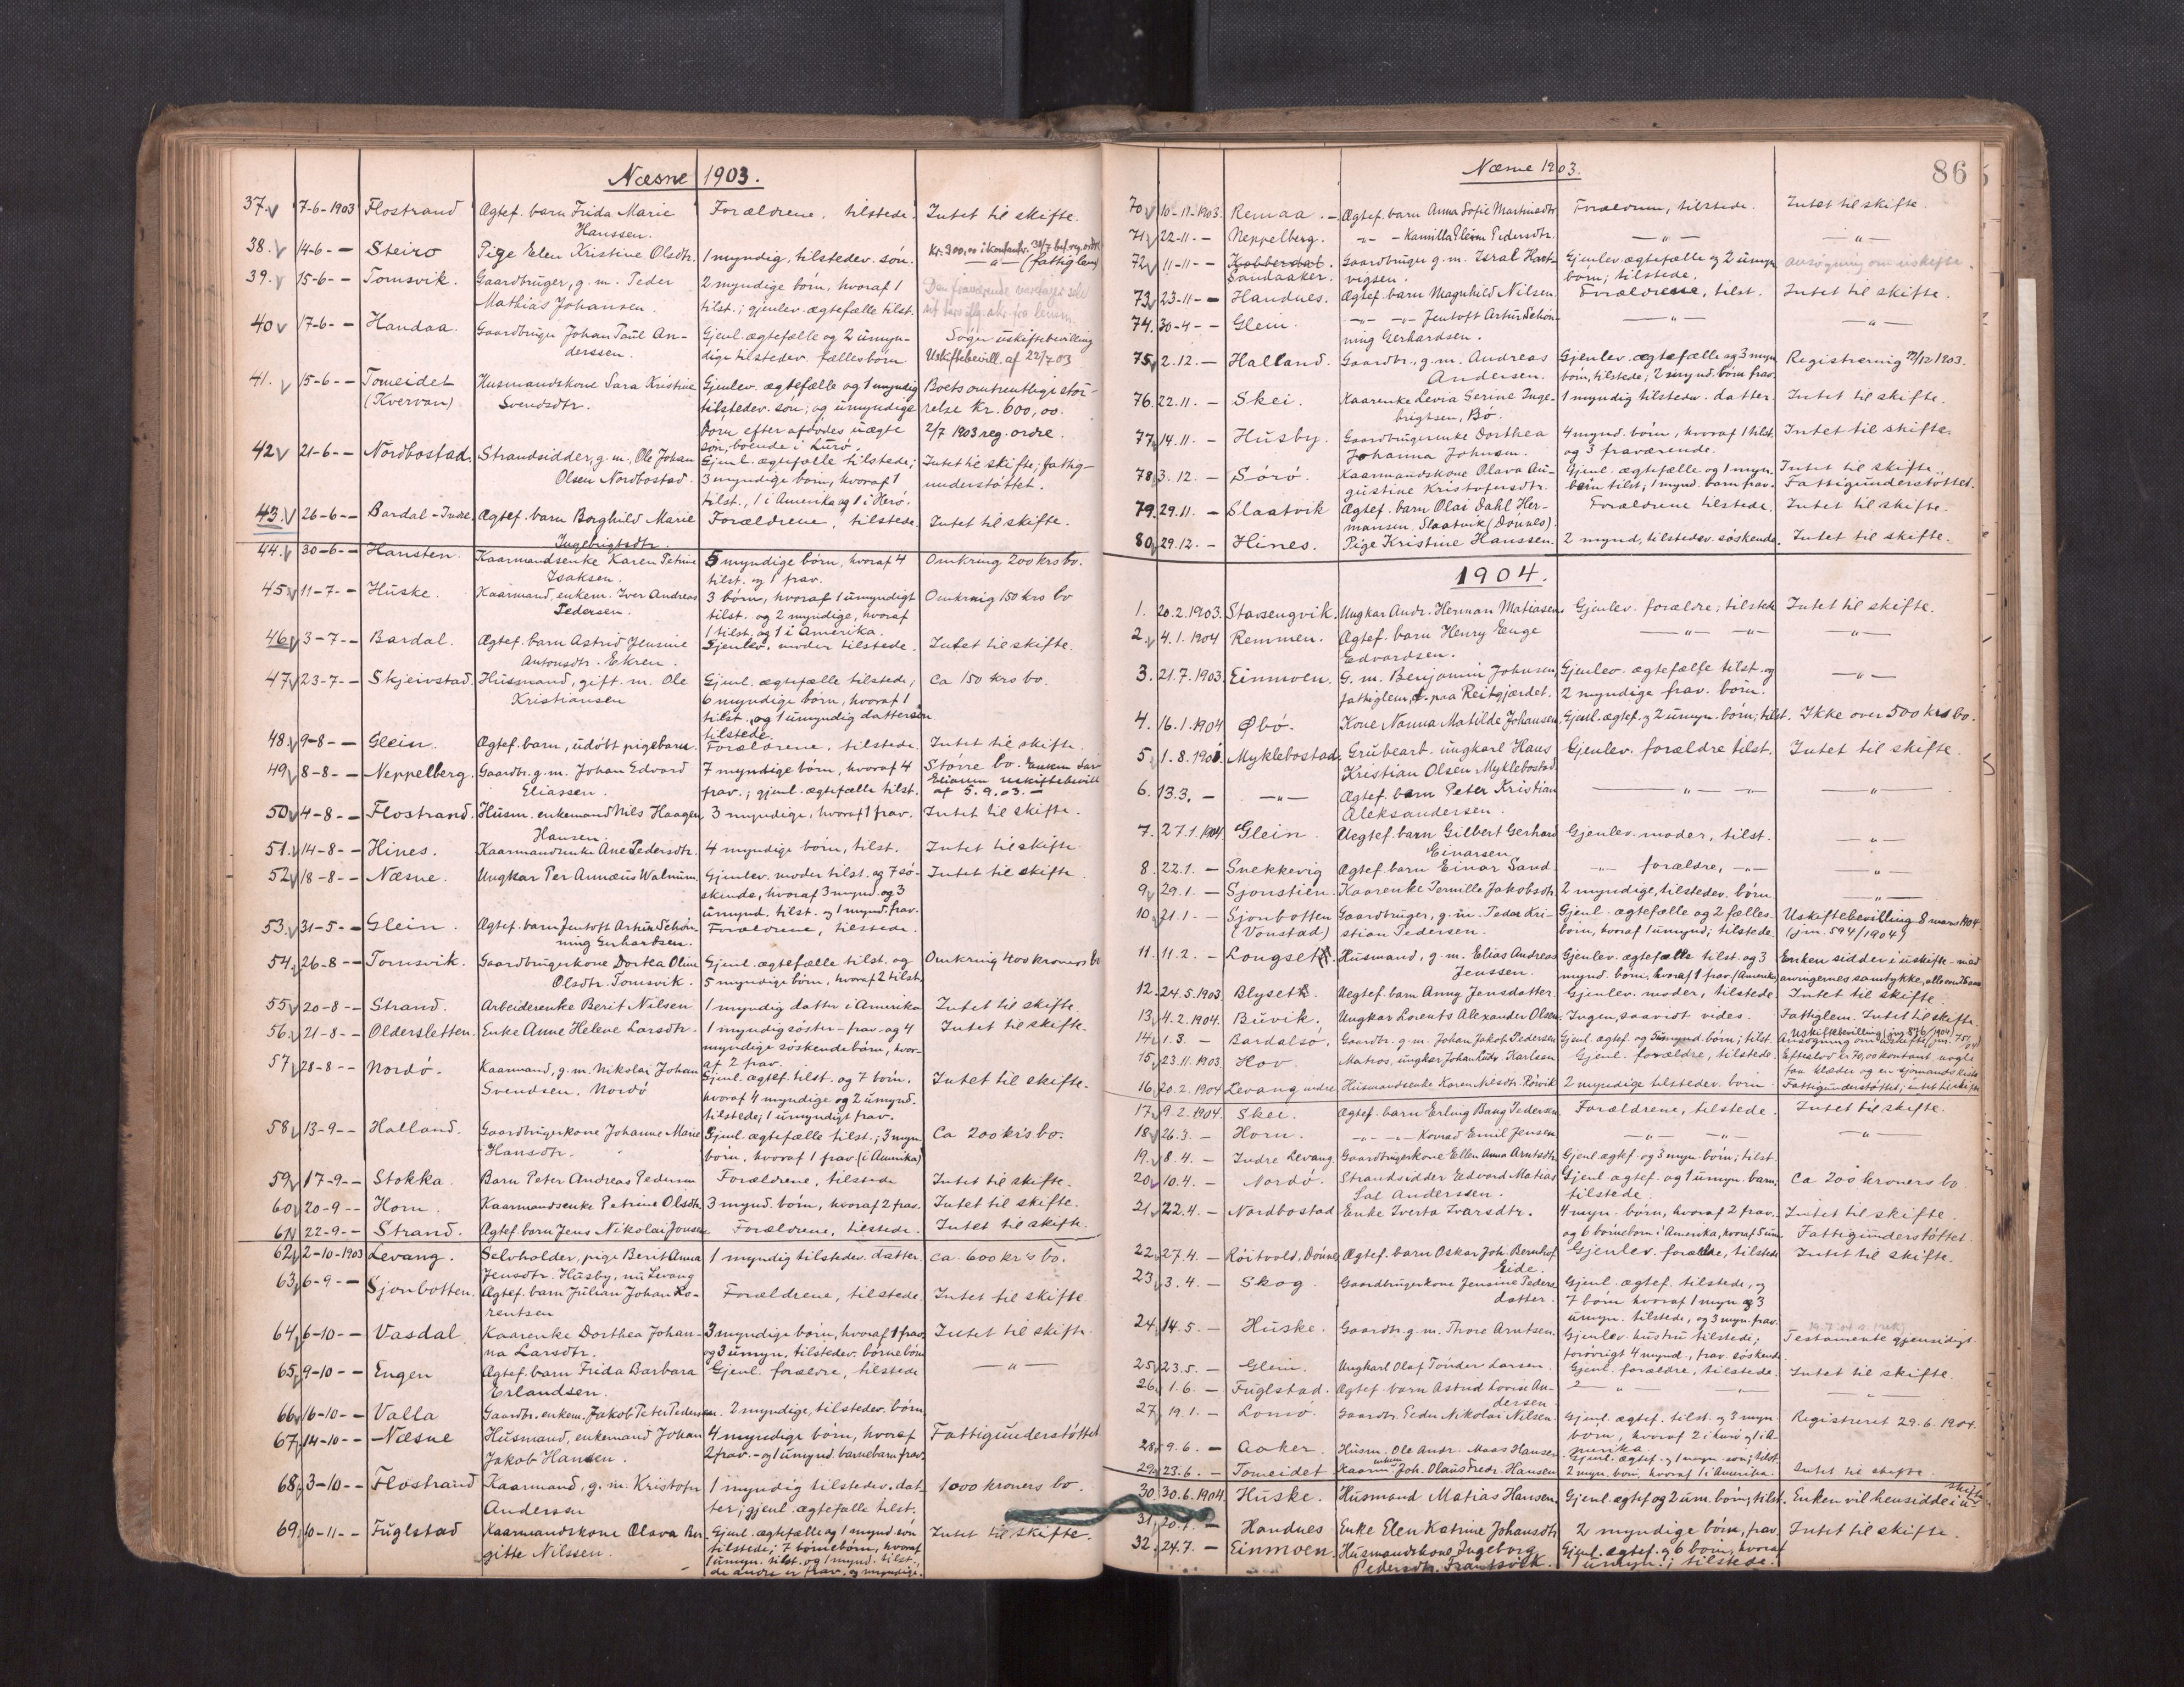 Næsne 1903.
37. 7-6-1903 Flostrand Ægtef. barn Frida Marie Hanssen. Forældrene, tilstede. Intet til skifte.
38. 14-6- — Steiro Pige Elen Kristine Olsdtr. 1 myndig, tilstedev. søn. Kr. 300,00 i kontanter.
— " — (fattiglem)
39. 15-6- — Tomsvik. Gaardbruger, g. m. Peder 2 myndige børn, hvoraf 1
Mathias Johansen. tilst.; gjenlev. ægtefælle tilst.
40 17-6- — Handaa. Gaardbruger Johan Paul An- Gjenl. ægtefælle og 2 umyn- Søger uskiftebevilling
derssen. dige tilstedev. fællesbørn Uskiftebevill. af 22/7 03
41. 15-6- — Tomeidet Husmandskone Sara Kristine Gjenlev. ægtefælle og 1 myndig Boets omtrentlige stør-
(Kvervan) Svendsdtr. tilstedev. søn; og umyndige relse Kr. 600,00.
børn efter afdødes uægte 2/7 1903 reg. ordre.
søn, boende i Lurø.
42 21-6- — Nordbostad. Strandsidder, g. m. Ole Johan Gjenl. ægtefælle tilstede; Intet til skifte; fattig-
Olsen Nordbostad. 3 myndige børn, hvoraf 1 understøttet.
tilst., 1 i Amerika og 1 i Herø.
43. 26-6- — Bardal-Indre. Ægtef. barn Borghild Marie Forældrene, tilstede. Intet til skifte.
Ingebrigtsdtr.
44. 30-6- — Hansten. Kaarmandsenke Karen Petrine 5 myndige børn, hvoraf 4 Omkring 200 krs bo.
Isaksen. tilst. og 1 frav.
45 11-7- — Huske. Kaarmand, enkem. Iver Andreas 3 børn, hvoraf 1 umyndigt Omkring 150 krs bo
Pedersen. tilst. og 2 myndige, hvoraf
1 tilst. og 1 i Amerika.
46 3-7- — Bardal. Ægtef. barn Astrid Jensine Gjenlev. moder tilstede. Intet til skifte.
Antonsdtr. Ekren.
47 23-7- — Skjeivstad. Husmand, gift. m. Ole Gjenl. ægtefælle tilstede; Ca 150 krs bo.
Kristiansen 6 myndige børn, hvoraf 1
tilst. og 1 umyndig dattersøn
tilstede.
48. 9-8- — Glein. Ægtef. barn, udøbt pigebarn. Forældrene, tilstede. Intet til skifte.
49 8-8- — Neppelberg. Gaardbr. g. m. Johan Edvard 7 myndige børn, hvoraf 4 Større bo. Enken
Eliassen. frav.; gjenl. ægtefælle tilst. uskiftebevill.
af 5.9.03. —
50 4-8- — Flostrand. Husm. enkemand Nils Haagen 3 myndige, hvoraf 1 frav. Intet til skifte.
Hansen.
51. 14-8- — Hines. Kaarmandsenke Ane Pedersdtr. 4 myndige børn, tilst. Intet til skifte.
52 18-8- — Næsne. Ungkar Per Annæus Walnum. Gjenlev. moder tilst. og 7 sø- Intet til skifte.
skende, hvoraf 3 mynd. og 3
umynd. tilst. og 1 mynd. frav.
53. 31-5- — Glein. Ægtef. barn Jentoft Artur Schøn- Forældrene, tilstede.
ning Gerhardsen.
54. 26-8- — Tomsvik. Gaardbrugerkone Dortea Oline Gjenl. ægtefælle tilst. og Omkring 400 kroners bo
Olsdtr. Tomsvik. 5 myndige børn, hvoraf 2 tilst.
55 20-8- — Strand. Arbeiderenke Berit Nilsen 1 myndig datter i Amerika Intet til skifte.
56. 21-8- — Oldersletten. Enke Anne Helene Larsdtr. 1 myndig søster frav. og 4 Intet til skifte.
myndige søskendebørn, hvor-
af 2 frav.
57 28-8- — Nordø. Kaarmand, g. m. Nikolai Johan Gjenl. ægtef. tilst. og 7 børn, Intet til skifte.
Svendsen. Nordø hvoraf 4 myndige og 2 umynd.
tilstede; 1 umyndigt frav.
58 13-9- — Halland. Gaardbrugerkone Johanne Marie Gjenl. ægtefælle tilst.; 3 myn. Ca 200 kr's bo.
Hansdtr. børn, hvoraf 1 frav. (i Amerika)
59 17-9- — Stokka. Barn Peter Andreas Pedersen Forældrene, tilstede Intet til skifte.
60 20-9 — Horn. Kaarmandsenke Petrine Olsdtr. 3 mynd. børn, hvoraf 2 frav. Intet til skifte.
61 22-9- — Strand. Ægtef. barn Jens Nikolai Jonsen Forældrene, tilstede. Intet til skifte.
62 2-10-1903 Levang. Selvholder, pige Berit Anna 1 myndig tilstedev. datter ca. 600 kr's bo.
Jensdtr. Husby, nu Levang
63 6-9- — Sjonbotten. Ægtef. barn Julian Johan Lo- Forældrene, tilstede. Intet til skifte
rentsen
64 6-10- — Vasdal Kaarenke Dorthea Johan- 3 myndige børn, hvoraf 1 frav. Intet til skifte.
na Larsdtr. og 3 umyn. tilstedev. børnebørn
65 9-10- — Engen Ægtef. barn Frida Barbara Gjenl. forældre, tilstede — " —
Erlandsen.
66 16-10- — Valla Gaardbr. enkem. Jakob Peter Pedersen. 2 myndige, tilstedev. børn.
67 14-10- — Næsne Husmand, enkemand Johan 4 myndige børn, hvoraf Fattigunderstøttet
Jakob Hansen. 2 frav. og 1 umynd. barnebarn frav.
68 3-10- — Flostrand Kaarmand, g. m. Kristofer 1 myndig tilstedev. dat- 1000 kroners bo.
Andersen ter; gjenl. ægtefælle tilst.
69 10-11- — Fuglstad Kaarmandskone Olava Ber- Gjenl. ægtefælle og 1 mynd. søn Intet til skifte.
gitte Nilssen. tilstede; 7 børnebørn, hvoraf
1 umyn. tilst. og 1 mynd. tilst.,
de andre er frav. og myndige.
86
Næsne 1903.
70 10-11-1903. Remaa. Ægtef. barn Anna Sofie Martinsdtr. Forældrene, tilstede. Intet til skifte.
71 22-11. — Neppelberg. — " — Kamilla Pedersdtr. — " — — " —
72 11-11- — Kobberdal. Gaardbruger g. m. Isral Hart- Gjenlev. ægtefælle og 2 umyn. ansøgning om uskifte.
Sandaaker. vigsen. børn; tilstede.
73 23-11- — Handnes. Ægtef. barn Magnhild Nilsen. Forældrene, tilst. Intet til skifte.
74. 30-4- — Glein. — " — Jentoft Artur Schøn- — " — — " —
ning Gerhardsen.
75 2.12. — Halland. Gaardbr., g. m. Andreas Gjenlev. ægtefælle og 3 myn. Registrering 1903.
Andersen. børn, tilstede; 2 mynd. børn frav.
76. 22.11. — Skei. Kaarenke Levia Serine Inge- 1 myndig tilstedev. datter. Intet til skifte.
brigtsen, Bø.
77 14.11. — Husby. Gaardbrugerenke Dorthea 4 mynd. børn, hvoraf 1 tilst. Intet til skifte.
Johanna Johnsen. og 3 fraværende.
78 3.12. — Sørø. Kaarmandskone Olava Au- Gjenl. ægtefælle og 1 myn. Intet til skifte.
gustine Kristofersdtr. barn tilst; 1 mynd. barn frav. Fattigunderstøttet.
79. 29.11. — Slaatvik Ægtef. barn Olai Dahl Her- Forældrene tilstede. Intet til skifte.
mansen, Slaatvik (Dønnes).
80 29.12. — Hines. Pige Kristine Hanssen. 2 mynd. tilstedev. søskende. Intet til skifte.
1904.
1. 20.2.1903. Stavsengvik. Ungkar Andr. Herman Matiasen. Gjenlev. forældre; tilstede Intet til skifte.
2. 4.1.1904 Remmen. Ægtef. barn Henry Enge — " — — " — — " —
Edvardsen.
3. 21.7.1903. Einmoen. G. m. Benjamin Johnsen, Gjenlev. ægtefælle tilst. og — " —
fattiglem, paa Reitgjærdet. 2 myndige frav. børn.
4. 16.1.1904 Øbø. Kone Nanna Matilde Johansen. Gjenl. ægtef. og 2 umyn. børn; tilst. Ikke over 500 krs bo.
5 1.8. Myklebostad. Grubearb. ungkarl Hans Gjenlev. forældre tilst. Intet til skifte.
Kristian Olsen Myklebostad
6. 13.3. — — " — Ægtef. barn Peter Kristian — " — " — — " —
Aleksandersen.
7. 27.1.1904 Glein. Uegtef. barn Gilbert Gerhard Gjenlev. moder, tilst. — " —
Einarsen
8. 22.1. — Snekkevig Ægtef. barn Einar Sand — " — forældre, — " — — " —
9 29.1. — Sjonstien. Kaarenke Pernille Jakobsdtr. 2 myndige, tilstedev. børn — " —
10 21.1. — Sjonbotten Gaardbruger, g. m. Peder Kri- Gjenl. ægtefælle og 2 fælles- Uskiftebevilling 8 mars 1904
(Vonstad) stian Pedersen. børn, hvoraf 1 umynd; tilstede. (jrn. 594/1904)
11. 11.2. — Longset. Husmand, g. m. Elias Andreas Gjenlev. ægtefælle tilst. og 3 Enken sidder i uskifte med
Jenssen. mynd. børn, hvoraf 1 frav. (Amerika) arvingernes samtykke,
12. 24.5.1903 Blyset. Uegtef. barn Anny Jensdatter. Gjenlev. moder, tilstede Intet til skifte.
13. 4.2.1904. Buvik. Ungkar Lorents Alexander Olsen. Ingen, saavidt vides. Fattiglem. Intet til skifte.
14. 1.3. — Bardalsø. Gaardbr. g. m. Johan Jakob Pedersen Gjenl. ægtef. og 5 umynd. børn; tilst. Uskiftebevilling
15 23.11.1903 Hov. Matros, ungkar Johan Karlsen Gjenl. forældre, tilstede. Efterlod kr. 70,00 kontant, nogle
faa klæder og en sjømandskiste
16. 20.2.1904 Levang indre Husmandsenke Karen Nilsdtr. Røsvik 2 myndige tilstedev. børn. Fattigunderstøttet; intet til skifte
17 9.2.1904. Skei. Ægtef. barn Erling Bang Pedersen Forældrene, tilstede. Intet til skifte.
18 26.3. — Horn. — " — " — Konrad Emil Jensen — " — — " — — " —
19. 8.4. — Indre Levang Gaardbrugerkone Ellen Anna Arntsdtr. Gjenl. ægtef. og 3 myn. børn; tilst.
20 10.4. — Nordø. Strandsidder Edvard Matias Gjenl. ægtef. og 1 umyn. barn; Ca 200 kroners bo
Sal Anderssen. tilstede.
21 22.4. — Nordbostad Enke Iverta Ivarsdtr. 4 myn. børn, hvoraf 2 frav. Intet til skifte.
og 6 børnebørn i Amerika, hvoraf 5 um. Fattigunderstøttet
22. 27.4. — Røitvold, Dønnes Ægtef. barn Oskar Joh. Bernhof Gjenlev. forældre, tilstede Intet til skifte.
Eide.
23 3.4. — Skog. Gaardbrugerkone Jensine Peders- Gjenl. ægtef. tilstede, og
datter. 7 børn hvoraf 1 myn og 3
umyn. tilstede, og 3 myn. frav.
24 14.5. — Huske. Gaardbr. g. m. Thore Arntsen. Gjenlev. hustru tilstede; Testamente gjensidigt.
forøvrigt 4 mynd., frav. søskende.
25 23.5. — Glein. Ungkarl Olaf Tønder Larsen. Gjenl. forældre, tilstede. Intet til skifte.
26. 1.6. — Fuglstad. Ægtef. barn Astrid Lovise An- — " — — " — — " —
derssen
27, 19.1. — Lomø. Gaardbr. Peder Nikolai Nilsen. Gjenl. ægtef. tilst. og 3 myn. Registreret 29.6.1904.
børn, hvoraf 2 i Lurø og 1 i A-
merika.
28 9.6. — Aaker. Husm. Ole Andr. Moas Hansen Gjenl. ægtef. og 1 myn. søn; tilst.
29 23.6. — Tomeidet Kaarm. Joh. Olaus Fredr. Hansen 2 myn. børn, hvoraf 1 i Amerika. Intet til skifte
30. 30.6.1904. Huske. Husmand Matias Hansen. Gjenl. ægtef og 2 um. børn; tilst. Enken vil hensidde i u-
skifte
31. 20.7. — Handnes Enke Elen Katrine Johansdtr. 2 myndige børn, frav. Intet til skifte.
32. 24.7. — Einmoen. Husmandskone Ingeborg Gjenl. ægtef. og 6 børn, hvoraf
Pedersdtr. Frantsvik. 1 umyn.; tilstede.